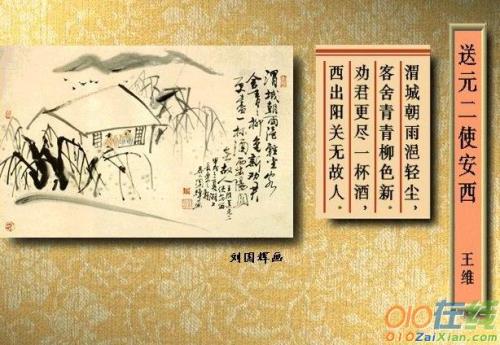 送元二使安西
王维
渭城朝雨浥轻尘，
客舍青青柳色新。
劝君更尽一杯酒，
西出阳关无故人。
渭城朝雨浥轻尘客
舍青青柳色新劝君
更尽一杯酒西出阳关
无故人
刘国辉画
010在线
010ZaiXian.com